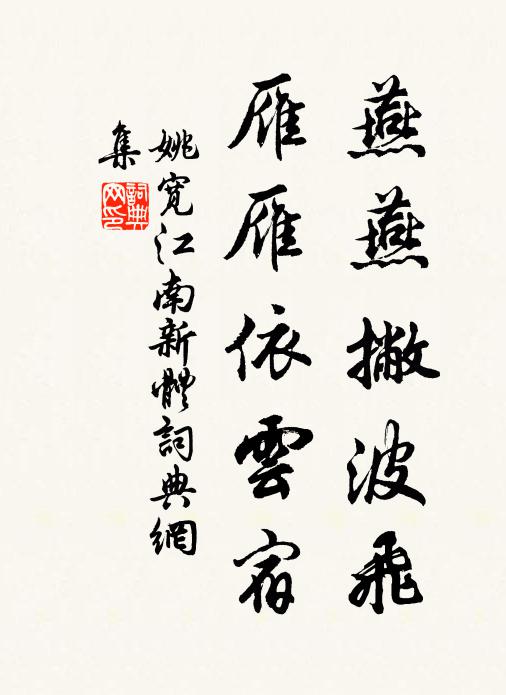 燕燕撇波飛
雁雁依雲宿
姚寬江南新體詞典網
集
詞典
网印